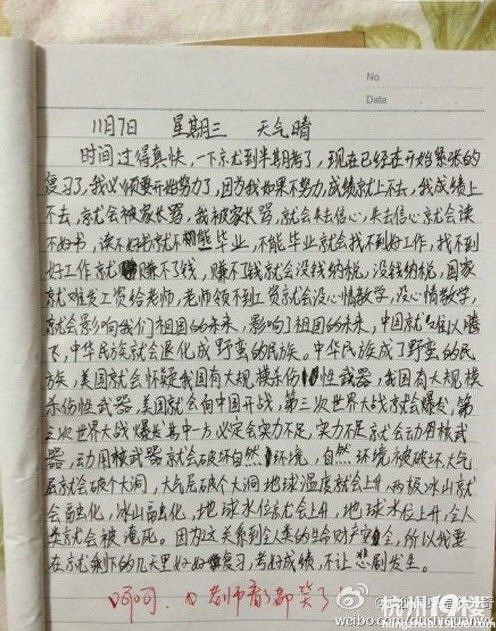 No.
Data
11月7日 星期三 天气晴
时间过得真快,一下就到半期考了,现在已经在开始紧张的
复习了,我必须要开始努力了,因为我如果不努力,成绩就上不去,我成绩上
不去,就会被家长骂,我被家长骂,就会失去信心,失去信心就会读
不好书,读不好书就不能毕业,不能毕业就会找不到好工作,找不到
好工作就赚不了钱,赚不了钱就会没钱纳税,没钱纳税,国家
就难发工资给老师,老师领不到工资就会没心情教学,没心情教学,
就会影响我们祖国的未来,影响了祖国的未来,中国就难以腾
飞,中华民族就会退化成野蛮的民族。中华民族成了野蛮的民
族,美国就会怀疑我国有大规模杀伤性武器,我国有大规模
杀伤性武器,美国就会向中国开战,第三次世界大战就会爆发,第
三次世界大战爆发其中一方必定会实力不足,实力不足就会动用核武
器,动用核武器就会破坏自然环境,自然环境被破坏,大气
层就会破个大洞,大气层破个大洞地球温度就会上升,两极冰山就
会融化,冰山融化,地球水位就会上升,地球水位上升,全人
类就会被淹死。因为这关系到全人类的生命财产安全,所以我要
在就剩下的几天里好好复习,考好成绩,不让悲剧发生。
呵呵,老师看了都笑了
杭州19楼
weibo.com/dushiquanwx